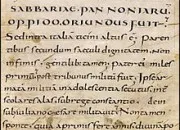 SABBARIAE PANNONIARU
OPPIDO ORIUNDUS FUIT
Sed intra italia ticini altus est. Paren
tibus secundum saeculi dignitatem non
infimis. gentilibus tamen. pater eius mi
les primum post tribunus militu fuit. Ipse ar
mata militia in adulescentia secutus inter
scolares alas sub rege constantio. dein
sub iuliano caesare militavit. non tamen
sponte quia a primis fere annis